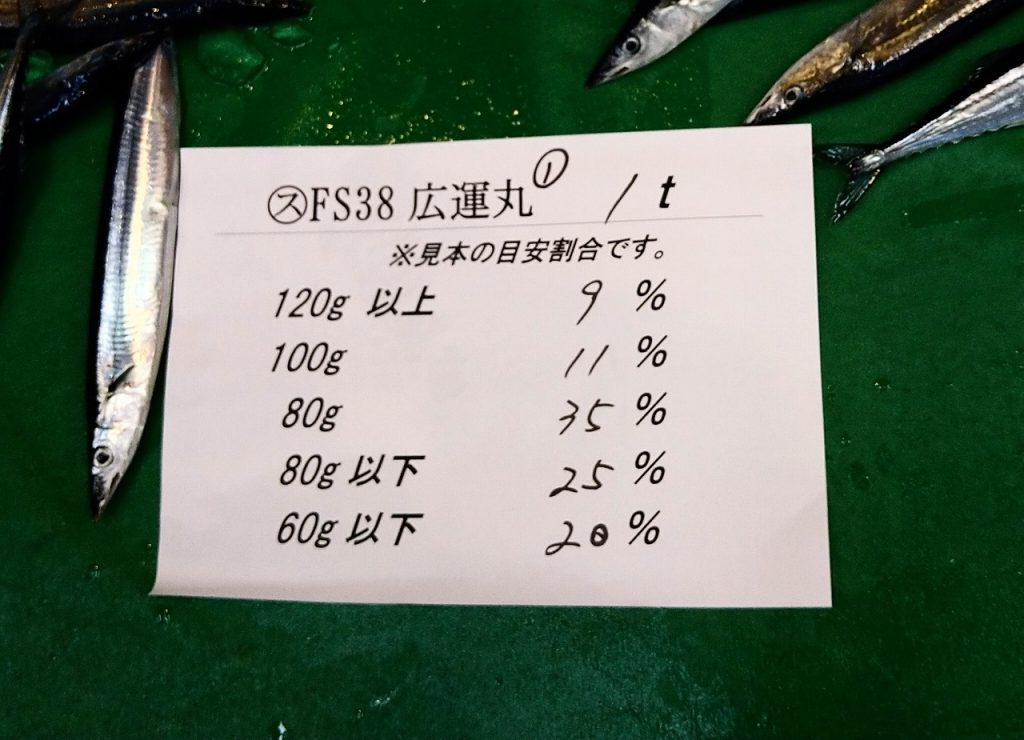 ㋜FS38 広運丸① / t
※見本の目安割合です。
120g 以上 9 %
100g 11 %
80g 35 %
80g 以下 25 %
60g 以下 20 %